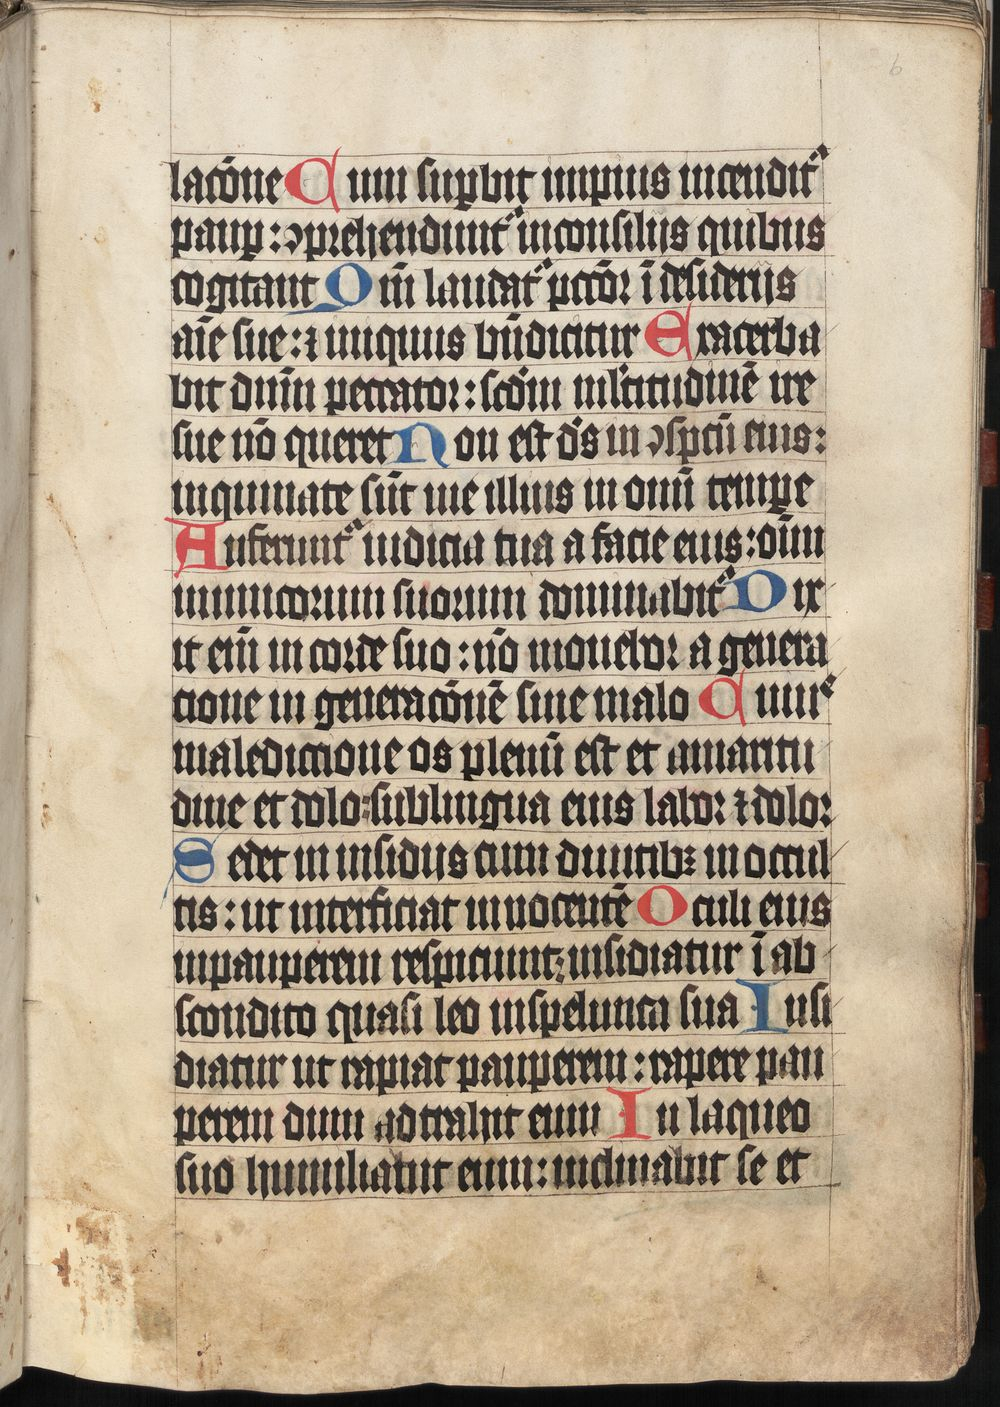 6
lacōne Cum supbit impius incendit᷑
paup: ɔprehenduntᷣ inconsilijs quibus
cogitant Qm̄ laudatᷣ pctōꝛ ī desiderijs
aīe sue: ⁊ iniquus bn̄dicitur Exacerba
bit dnm̄ peccatoꝛ: scdm̄ ml̓titudinē ire
sue nō queret Non est ds̄ in ɔspcū eius:
inquinate sūt uie illius in omī tempe
Auferuntᷣ iudicia tua a facie eius: oīm
inimicorum suorum dominabitᷣ Dix
it em̄ in corde suo: nō mouebor a genera
tione in generacōnē sine malo Cuiᷤ
maledictione os plenū est et amaritu
dine et dolo: sublingua eius laboꝛ ⁊ doloꝛ
Sedet in insidijs cum diuitibꝫ in occul
tis: ut interficiat innocentē Oculi eius
inpauperem respiciunt; insidiatur ī ab
scondito quasi leo inspelunca sua Insi
diatur ut rapiat pauperem: rapere pau
perem dum adtrahit eum In laqueo
suo humiliabit eum: inclinabit se et